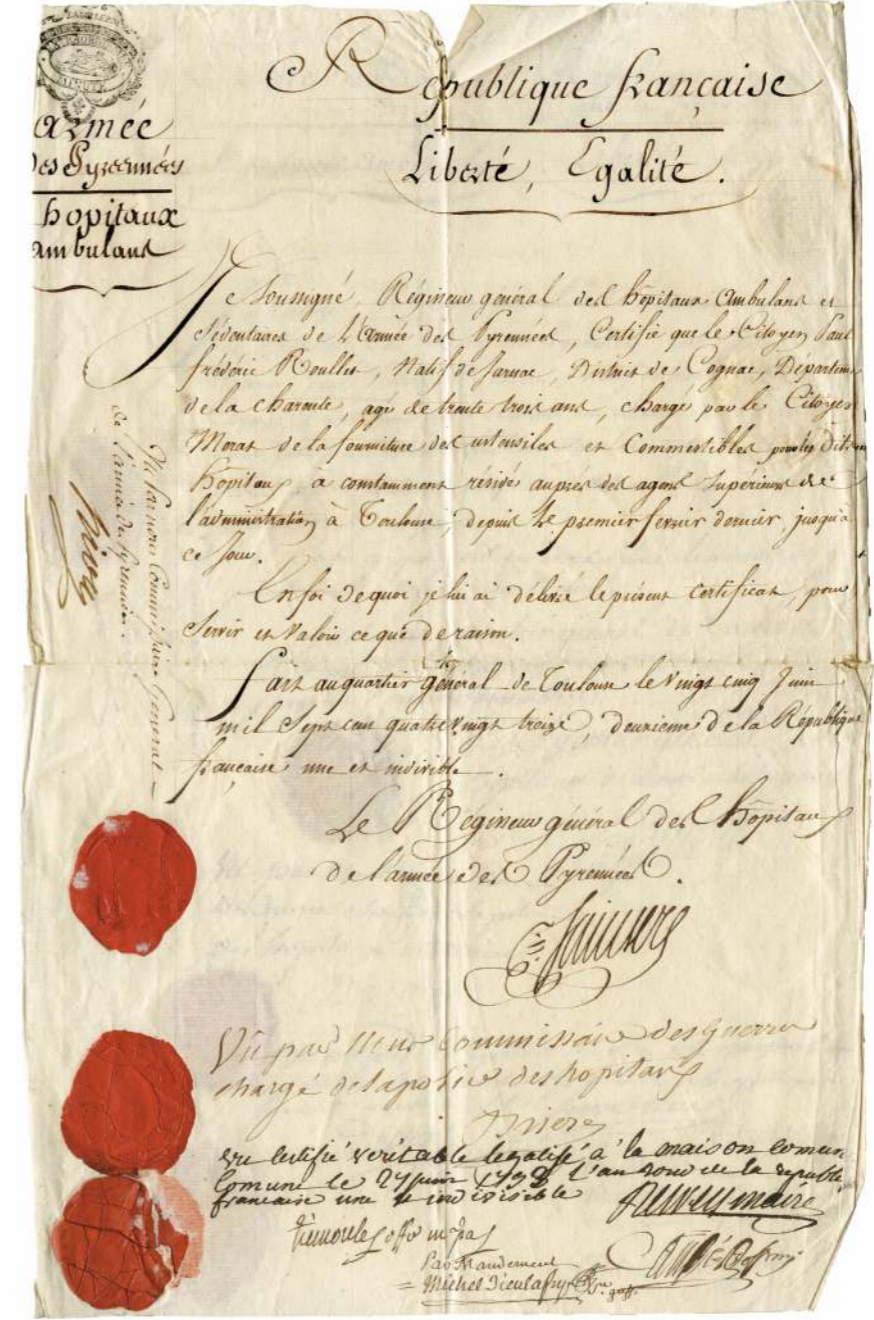 République française
Liberté, Egalité.
armée
des Pyrennées
hopitaux
ambulans
Je Soussigné, Régisseur général des hôpitaux Ambulans et
Sédentaires de L'armée des Pyrennées, Certifie que le Citoyen Paul
frédéric Roullet, Natif de Jarnac, District de Cognac, Départem
de la charente, agé de trente trois ans, chargé par le Citoyen
Morat de la fourniture des ustensiles et Commestibles pour les Dits
hôpitaux, a constamment résidé auprès des agens Supérieurs de
l'administration à Toulouse, depuis Le premier fevrier dernier, jusqu'à
ce Jour.
En foi de quoi je lui ai délivré le présent certificat, pour
Servir et Valoir ce que de raison.
fait au quartier général de Toulouse le Vingt cinq Juin
mil Sept cent quatre Vingt treize, deuxieme de la République
francaise une et indivisible.
Le Régisseur général des hôpitaux
de l'armée des Pyrennées.
Vu par Nous Commissaire General
de l'armée des Pyrennées.
Vu par Nous Commissaire des Guerres
chargé de la police des hopitaux
vu certifié veritable legalisé a la maison comun
Comune le 27 juin 1793 l'an 2ond de la republi
francaise une et indivisible
maire
off m pal
Par Mandement
Michel Dieulafoy